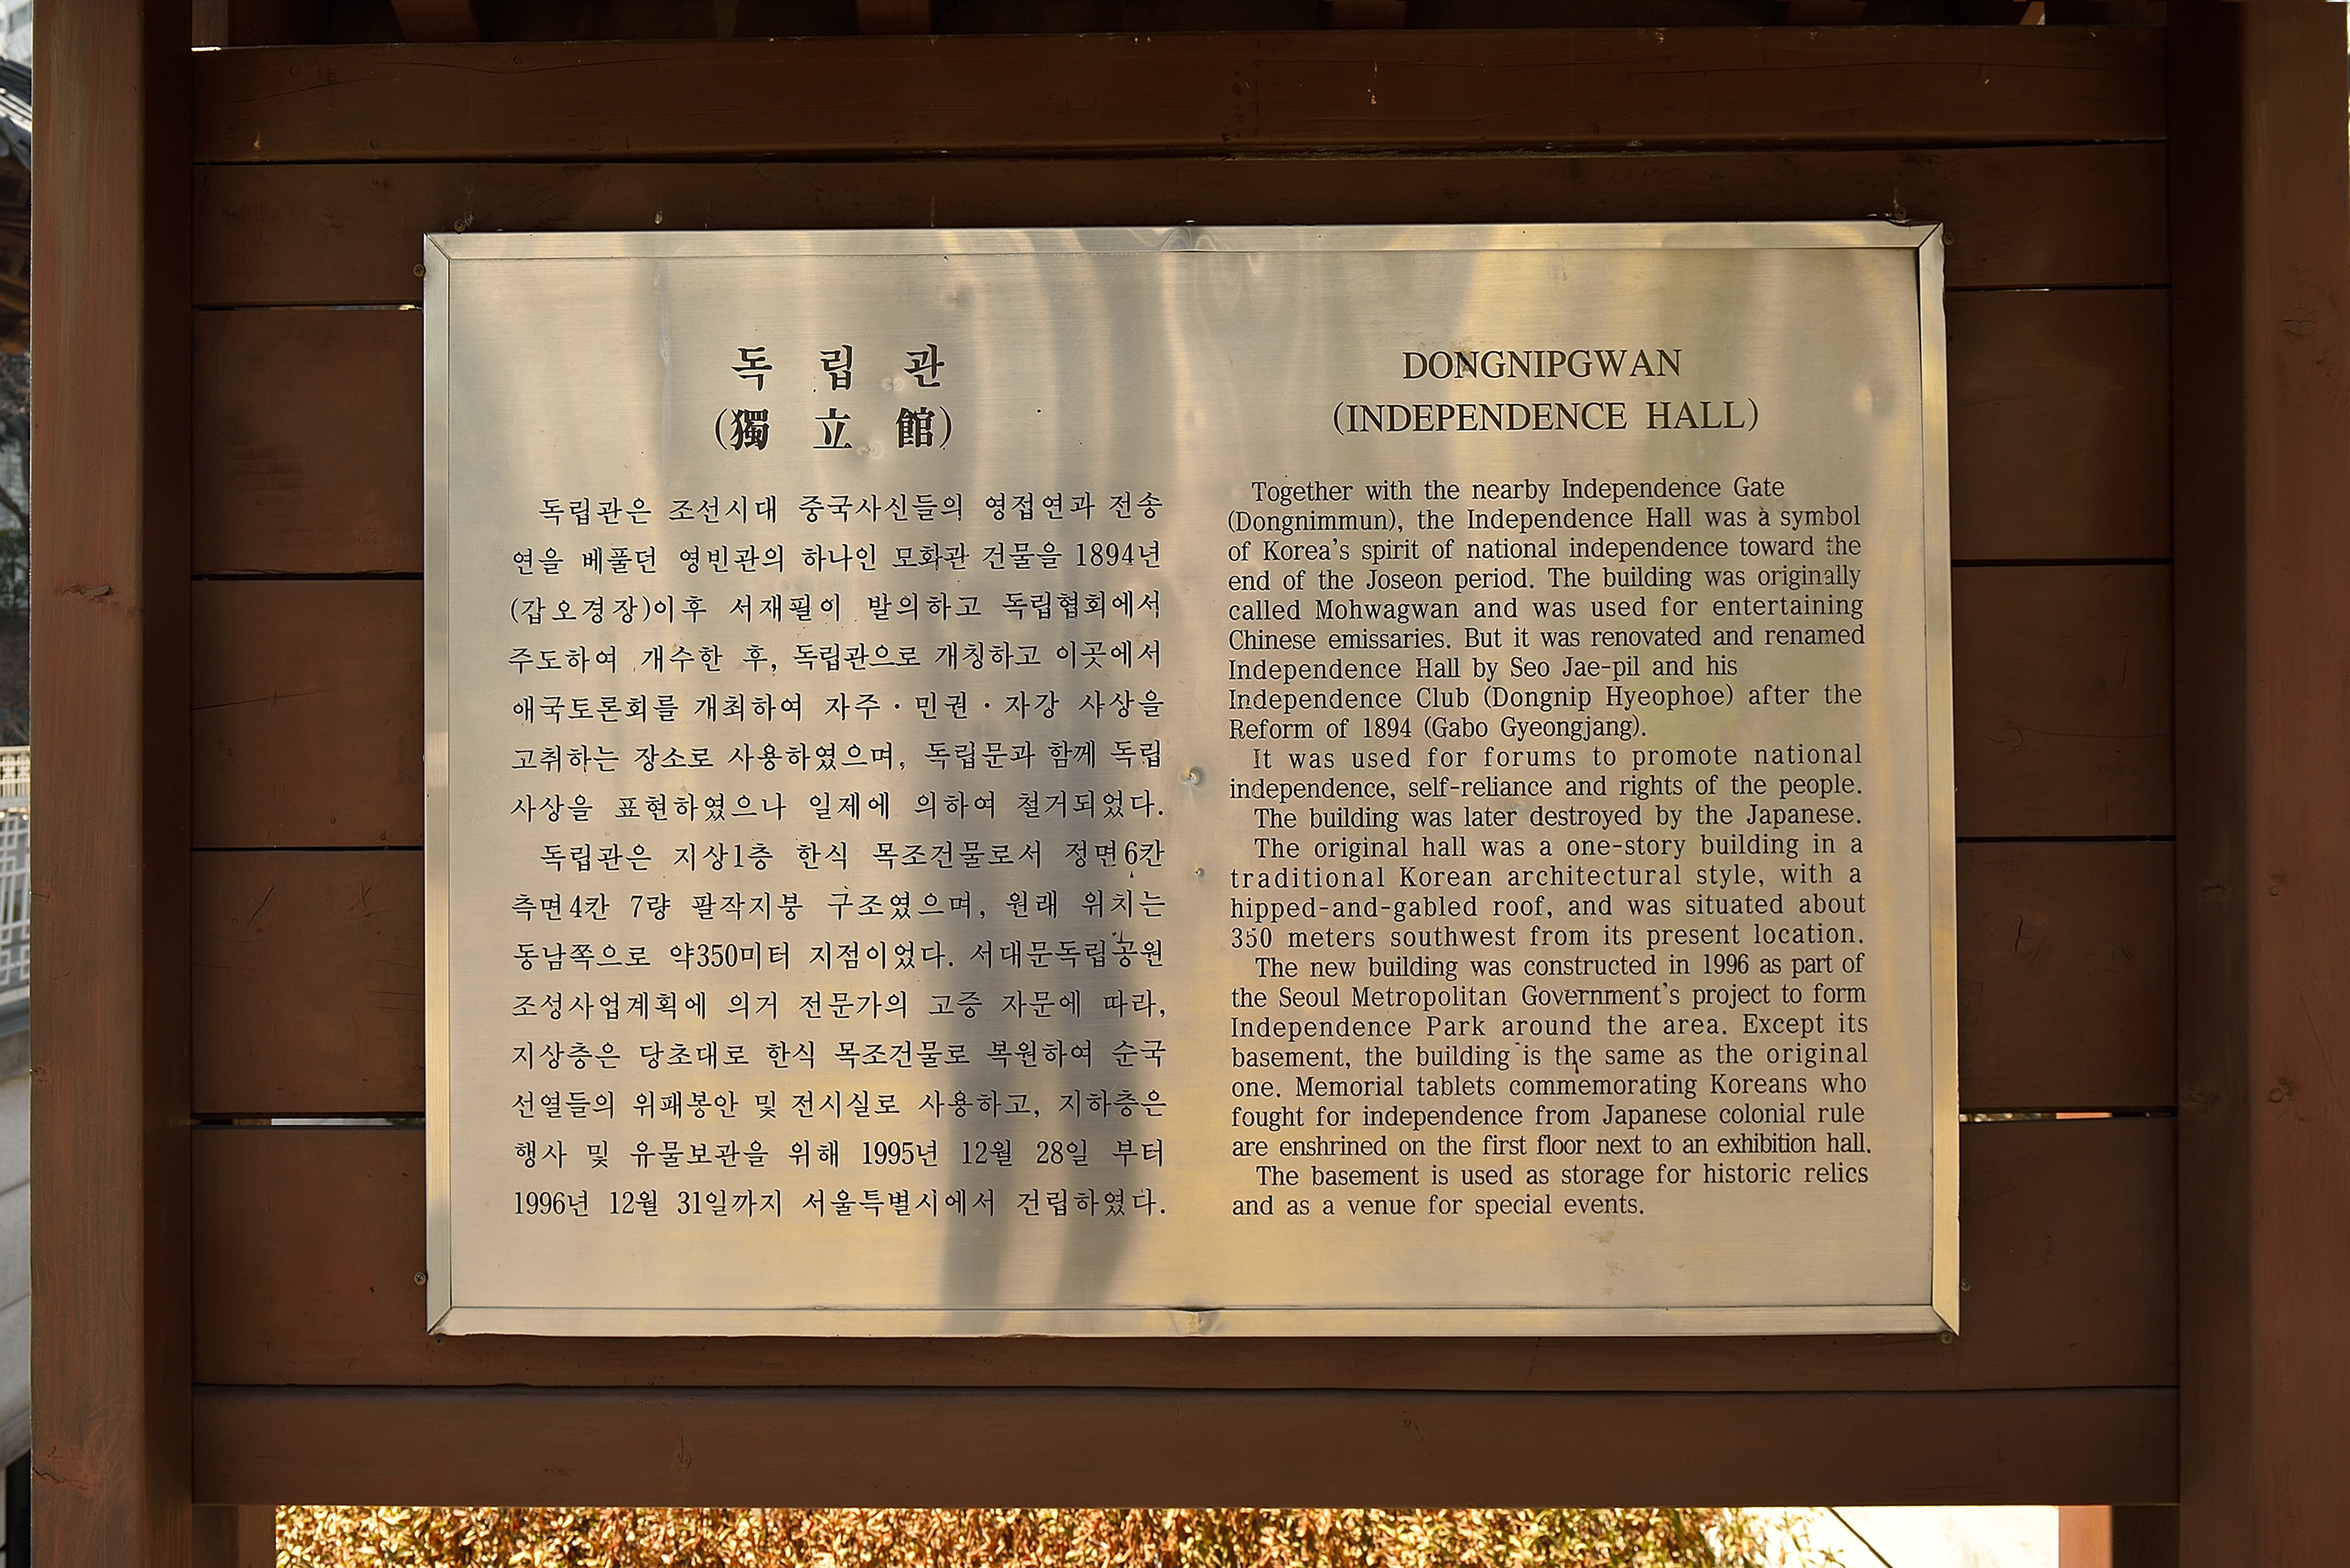 독 립 관
(獨 立 館)
독립관은 조선시대 중국사신들의 영접연과 전송
연을 베풀던 영빈관의 하나인 모화관 건물을 1894년
(갑오경장)이후 서재필이 발의하고 독립협회에서
주도하여 개수한 후, 독립관으로 개칭하고 이곳에서
애국토론회를 개최하여 자주·민권·자강 사상을
고취하는 장소로 사용하였으며, 독립문과 함께 독립
사상을 표현하였으나 일제에 의하여 철거되었다.
독립관은 지상1층 한식 목조건물로서 정면6칸
측면4칸 7량 팔작지붕 구조였으며, 원래 위치는
동남쪽으로 약350미터 지점이었다. 서대문독립공원
조성사업계획에 의거 전문가의 고증 자문에 따라,
지상층은 당초대로 한식 목조건물로 복원하여 순국
선열들의 위패봉안 및 전시실로 사용하고, 지하층은
행사 및 유물보관을 위해 1995년 12월 28일 부터
1996년 12월 31일까지 서울특별시에서 건립하였다.
DONGNIPGWAN
(INDEPENDENCE HALL)
Together with the nearby Independence Gate
(Dongnimmun), the Independence Hall was a symbol
of Korea's spirit of national independence toward the
end of the Joseon period. The building was originally
called Mohwagwan and was used for entertaining
Chinese emissaries. But it was renovated and renamed
Independence Hall by Seo Jae-pil and his
Independence Club (Dongnip Hyeophoe) after the
Reform of 1894 (Gabo Gyeongjang).
It was used for forums to promote national
independence, self-reliance and rights of the people.
The building was later destroyed by the Japanese.
The original hall was a one-story building in a
traditional Korean architectural style, with a
hipped-and-gabled roof, and was situated about
350 meters southwest from its present location.
The new building was constructed in 1996 as part of
the Seoul Metropolitan Government's project to form
Independence Park around the area. Except its
basement, the building is the same as the original
one. Memorial tablets commemorating Koreans who
fought for independence from Japanese colonial rule
are enshrined on the first floor next to an exhibition hall.
The basement is used as storage for historic relics
and as a venue for special events.